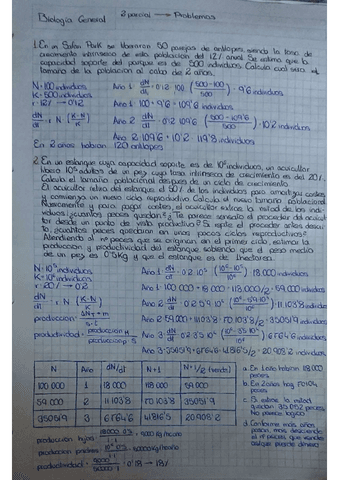 Biología General 2 parcial → Problemas
1. En un Safari Park se liberaron 50 parejas de antílopes, siendo la tasa de
crecimiento intrínseco de esta población del 12% anual. Se estima que la
capacidad soporte del parque es de 500 individuos. Calcula cual será el
tamaño de la población al cabo de 2 años.
N=100 individuos
K=500 individuos
r=12% → 0'12
Año 1: dN/dt = 0'12·100 (500-100/500) = 9'6 individuos
Año 1: 100 + 9'6 = 109'6 individuos
dN/dt = r N (K-N/K)
Año 2: dN/dt = 0'12·109'6 (500-109'6/500) = 10'2 individuos
Año 2: 109'6 + 10'2 = 119'8 individuos
En 2 años habrán 120 antílopes
2. En un estanque cuya capacidad soporte es de 10⁶ individuos, un acuicultor
libera 10⁵ adultos de un pez cuya tasa intrínseca de crecimiento es del 20%.
Calcula el tamaño poblacional después de un ciclo de crecimiento.
El acuicultor retira del estanque el 50% de los individuos para
y comienza un nuevo ciclo reproductivo. Calcula el nuevo tamaño poblacional.
Nuevamente y para pagar costes, el acuicultor extrae la mitad de los indi-
viduos: ¿cuántos peces quedan? ¿Te parece sensato el proceder del acuicul-
tor desde un punto de vista productivo? Si repite el proceder antes descri-
to, ¿cuántos peces quedarán en unos pocos ciclos reproductivos?
Atendiendo al nº peces que se originan en el primer ciclo, estima la
producción y productividad del estanque sabiendo que el peso medio
de un pez es 0'5Kg y que el estanque es de 1 hectárea.
N=10⁵ individuos
K=10⁶ individuos
r=20% → 0'2
Año 1: dN/dt = 0'2·10⁵ (10⁶-10⁵/10⁶) = 18.000 individuos
Año 1: 100.000 + 18.000 = 118.000/2 = 59.000 individuos
dN/dt = r N (K-N/K)
Año 2: dN/dt = 0'2·59·10³ (10⁶-59·10³/10⁶) = 11.103'8
Año 2: 59.000 + 11.103'8 = 70.103'8/2 = 35.051'9 individuos
producción =
productividad =
N Año dN/dt N+1 N+1/2 (venta)
100.000 1 18.000 118.000 59.000
59.000 2 11.103'8 70.103'8 35.051'9
35.051'9 3 6.764'6 41.816'5 20.908'2
a. En 1 año habrán 118.000
peces
b. En 2 años hay 70.104
peces
No parece lógico
d. Conforme más años
pasan, más descienden
producción hijos =
producción padres =
productividad = = 0'18 → 18%